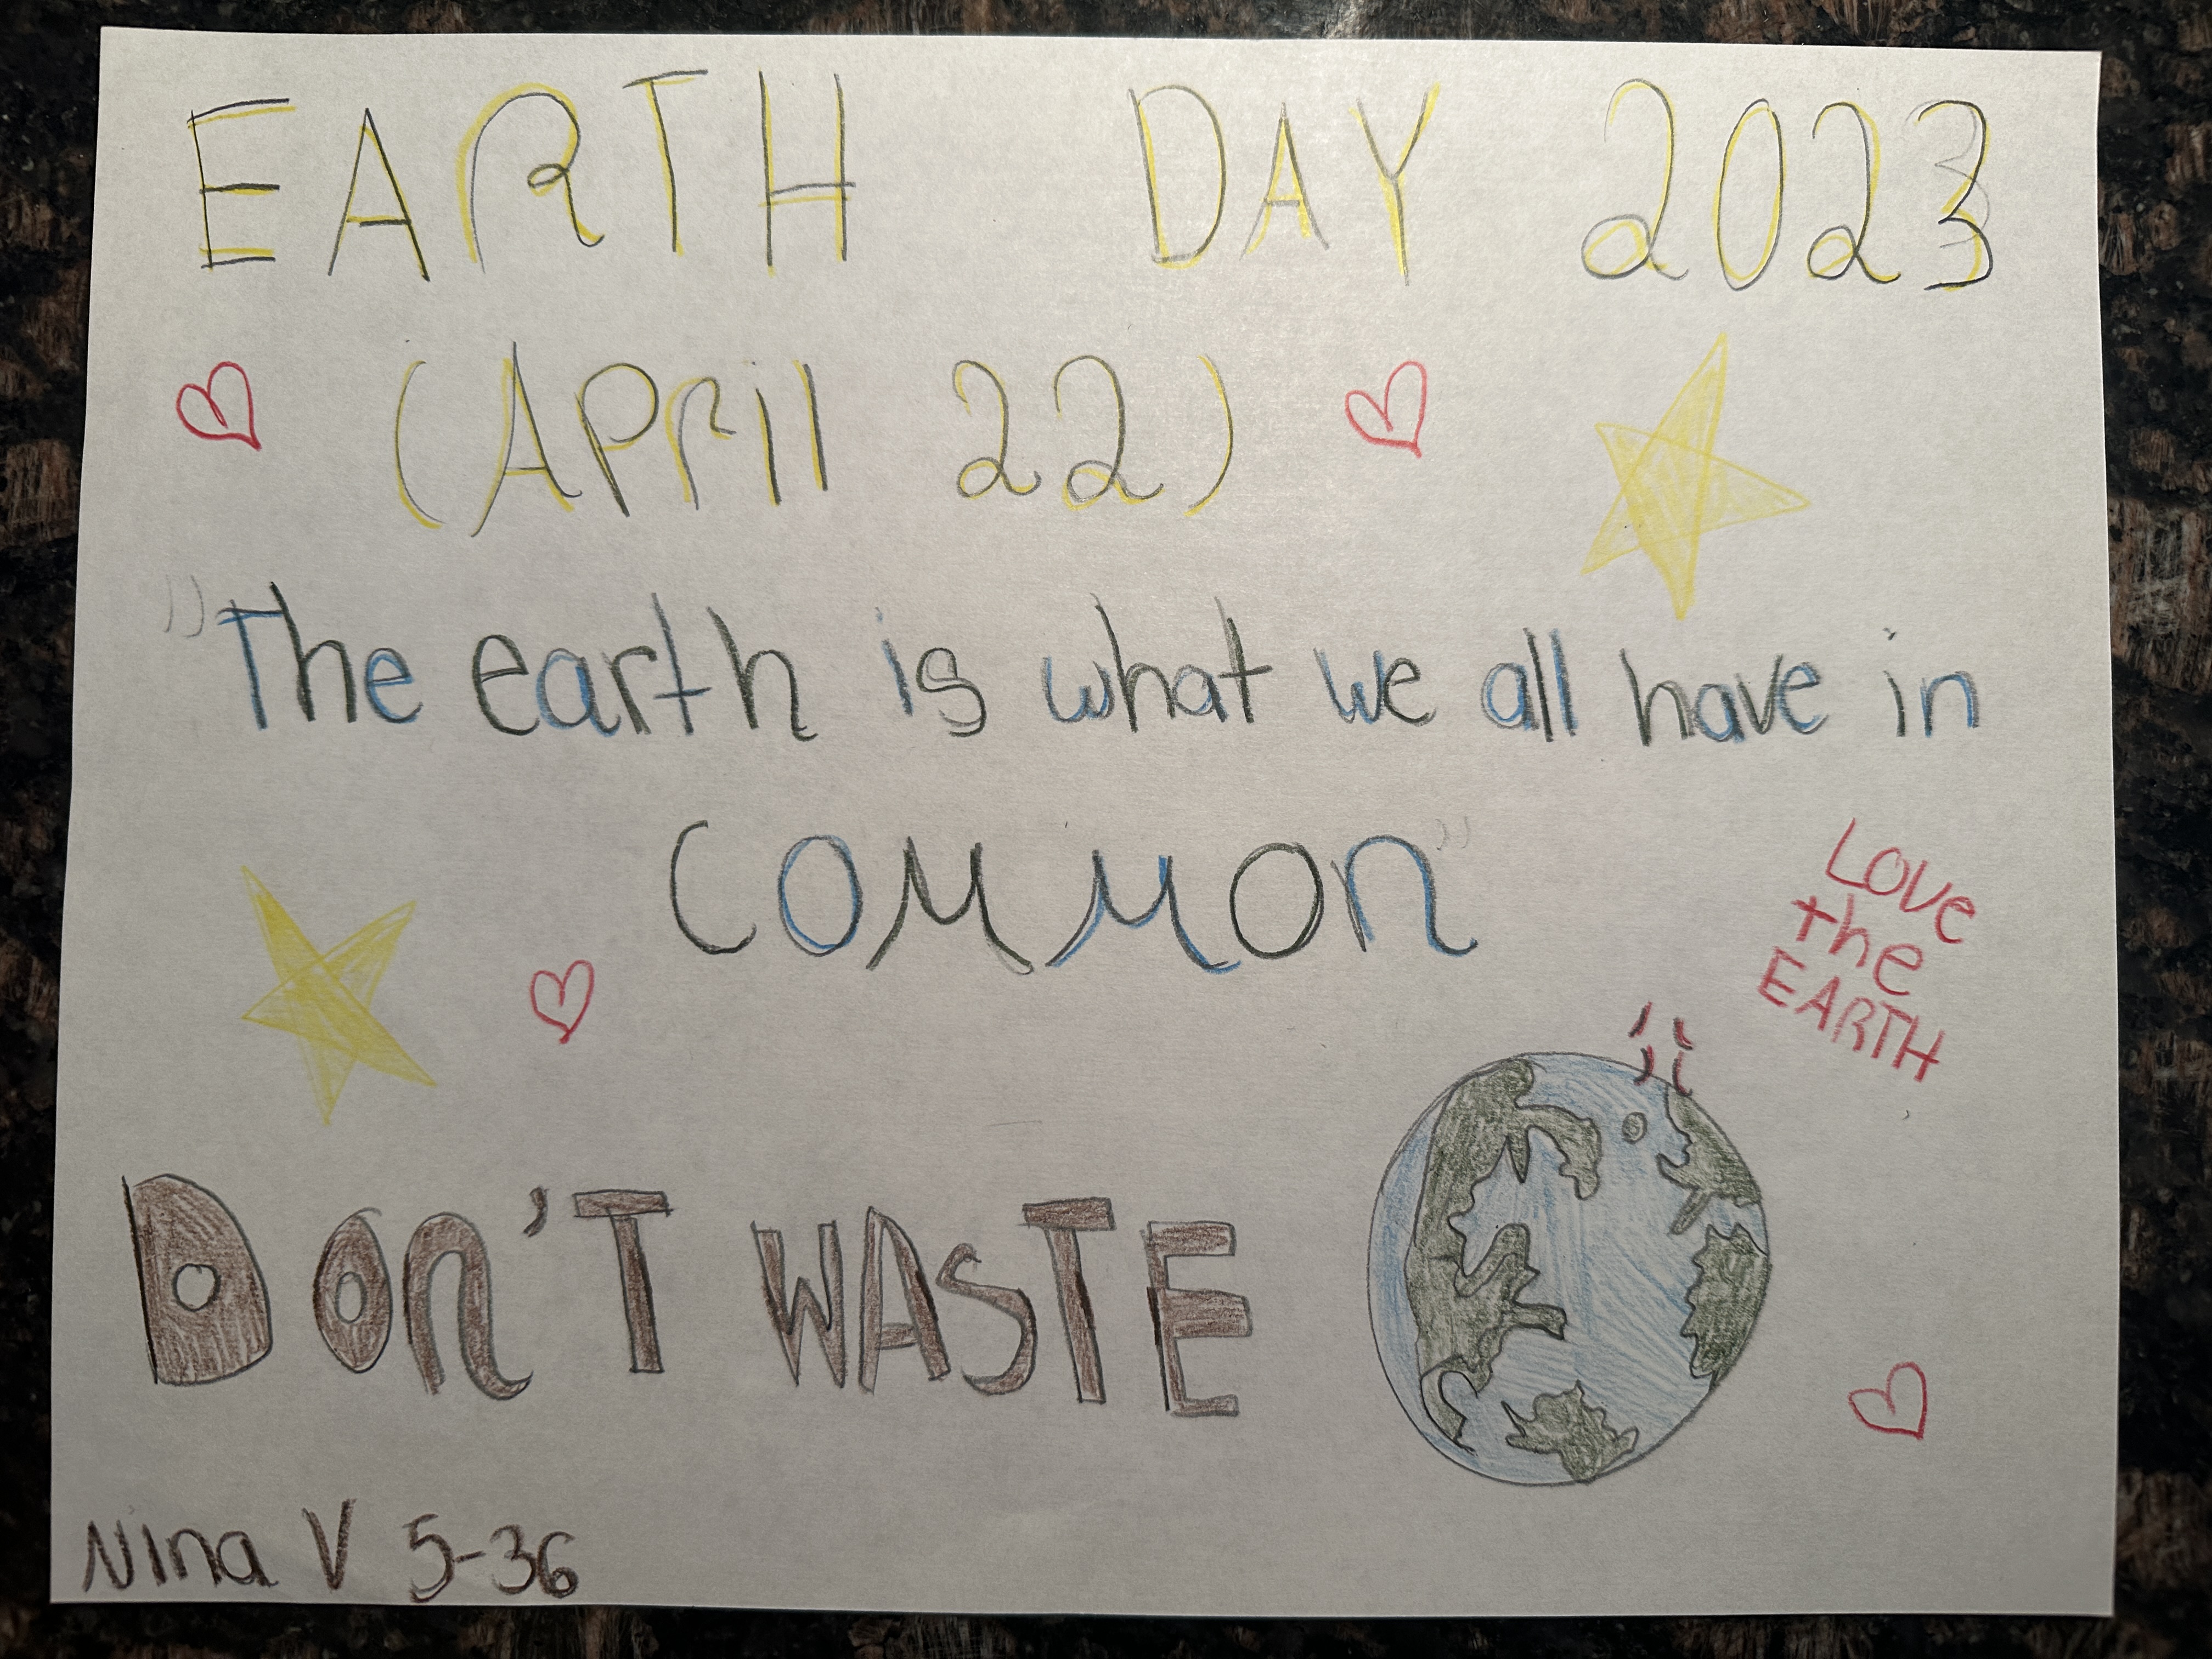 EARTH DAY 2023
(APril 22)
"The earth is what we all have in
COMMON"
Love
the
EARTH
DON'T WASTE
Nina V 5-36